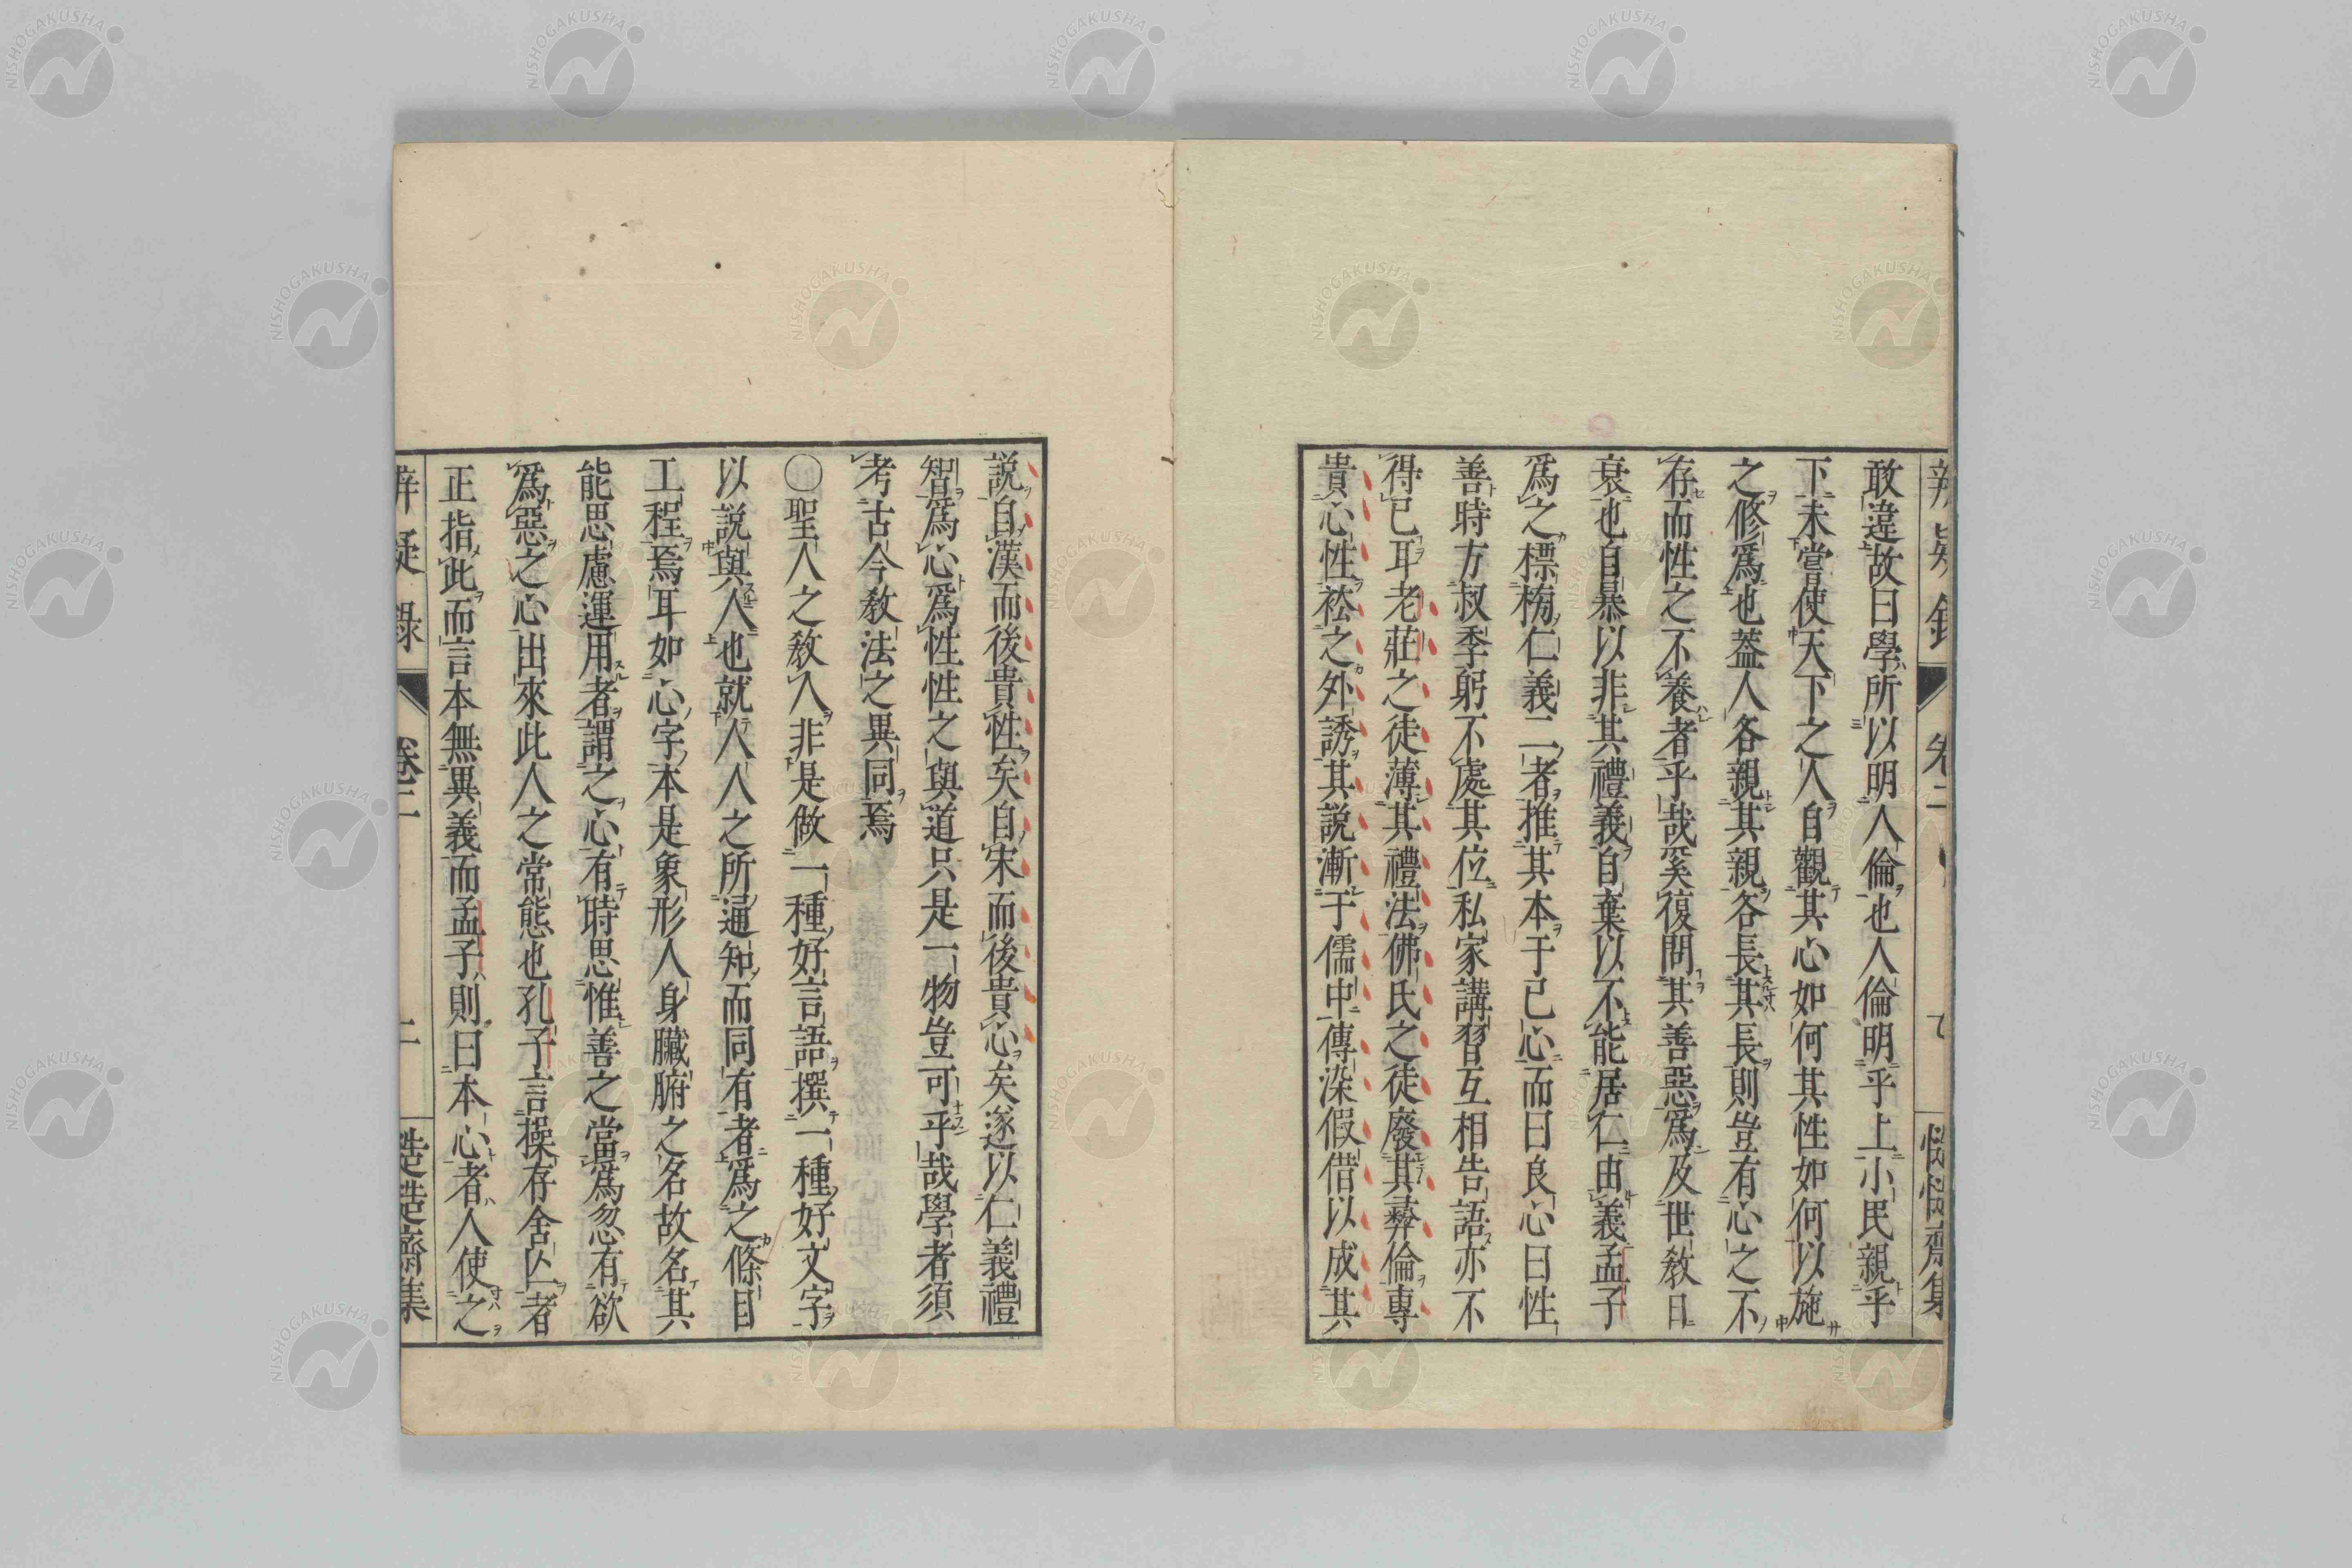 敢違故曰學所以明人倫也人倫明乎上小民親乎
下未嘗使天下之人自觀其心如何其性如何以施
之修爲也蓋人各親其親各長其長則豈有心之不
存而性之不養者乎哉奚復問其善惡爲及世教日
衰也自暴以非其禮義自棄以不能居仁由義孟子
爲之標榜仁義二者推其本于己心而曰良心曰性
善時方叔季躬不處其位私家講習互相告語亦不
得已耳老莊之徒薄其禮法佛氏之徒廢其彜倫專
貴心性袪之外誘其説漸于儒中傳染假借以成其
説自漢而後貴性矣自宋而後貴心矣遂以仁義禮
智爲心爲性性之與道只是一物豈可乎哉學者須
考古今教法之異同焉
〇聖人之教人非是做一種好言語撰一種好文字
以説與人也就人人之所通知而同有者爲之條目
工程焉耳如心字本是象形人身臟腑之名故名其
能思慮運用者謂之心有時思惟善之當爲忽有欲
爲惡之心出來此人之常態也孔子言操存舍亾者
正指此而言本無異義而孟子則曰本心者人使之
辨疑錄
卷二
二
慥慥齋集
NISHOGAKUSHA